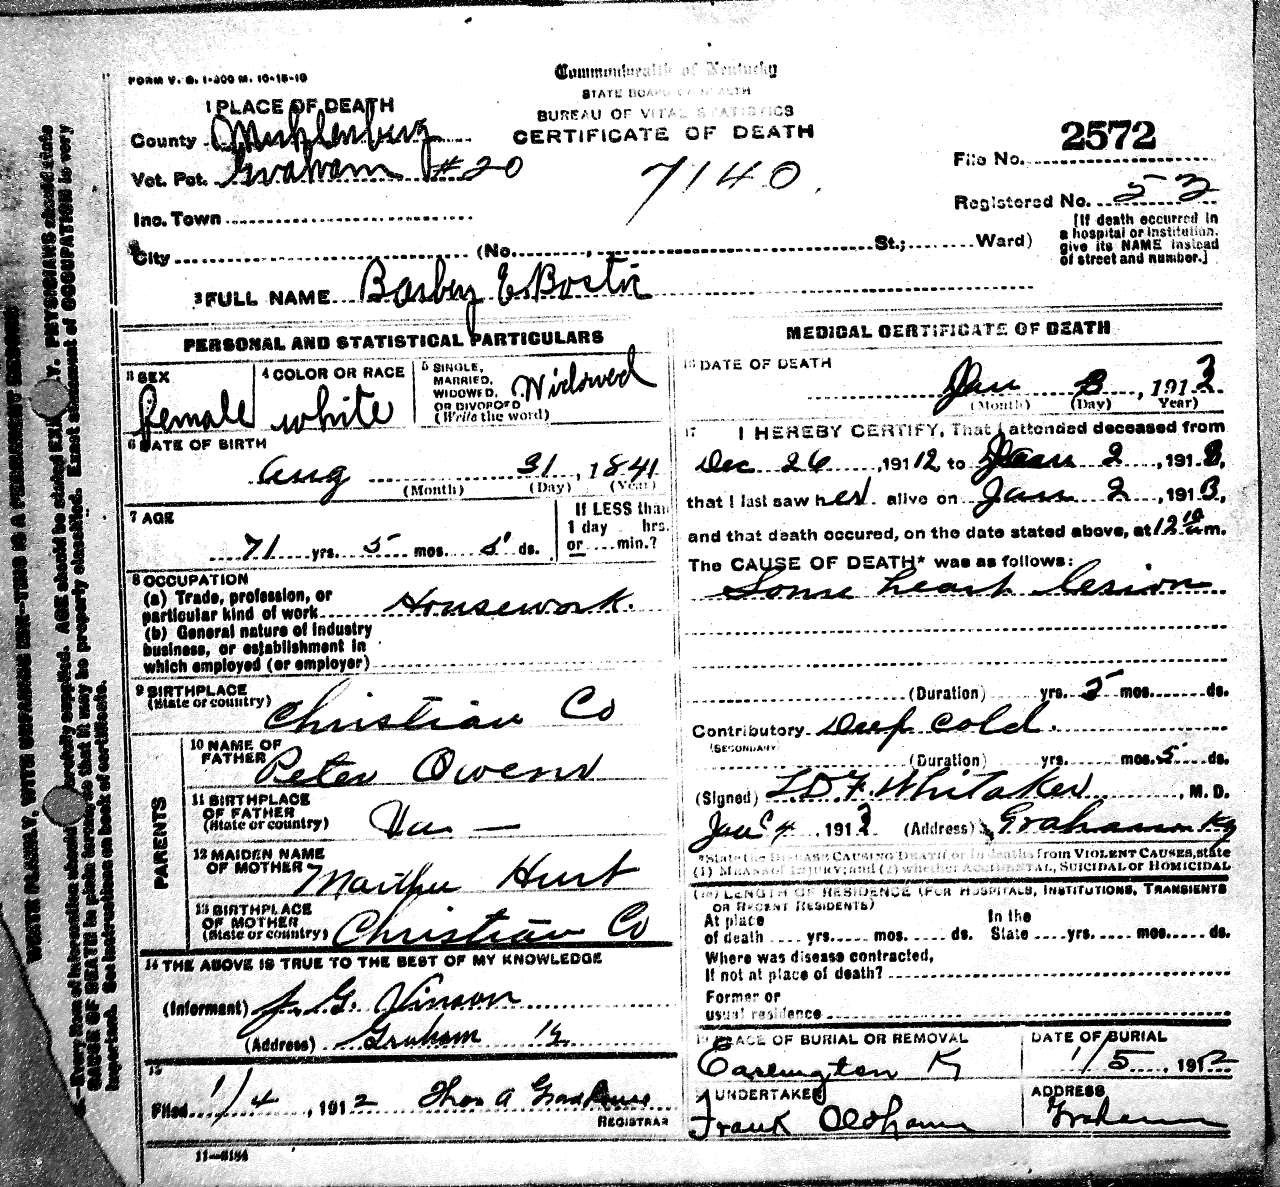 FORM V. S. 1-300 M. 10-15-10
Commonwealth of Kentucky
STATE BOARD OF HEALTH
BUREAU OF VITAL STATISTICS
CERTIFICATE OF DEATH
1 PLACE OF DEATH
County Muhlenburg
Vot. Pct. Graham #20
Inc. Town
City (No. St.; Ward)
7140
2572
File No.
Registered No. 53
[If death occurred in
a hospital or institution,
give its NAME instead
of street and number.]
2 FULL NAME Barbey E Bostic
PERSONAL AND STATISTICAL PARTICULARS
3 SEX female
4 COLOR OR RACE white
5 SINGLE, MARRIED, WIDOWED, OR DIVORCED (Write the word) Widowed
6 DATE OF BIRTH
Aug 31, 1841
(Month) (Day) (Year)
7 AGE
71 yrs. 5 mos. 5 ds.
If LESS than
1 day hrs.
or min.?
8 OCCUPATION
(a) Trade, profession, or
particular kind of work Housework.
(b) General nature of industry
business, or establishment in
which employed (or employer)
9 BIRTHPLACE
(State or country) Christian Co
PARENTS
10 NAME OF
FATHER Peter Owens
11 BIRTHPLACE
OF FATHER
(State or country) Va —
12 MAIDEN NAME
OF MOTHER Martha Hurt
13 BIRTHPLACE
OF MOTHER
(State or country) Christian Co
14 THE ABOVE IS TRUE TO THE BEST OF MY KNOWLEDGE
(Informant) J. G. Vinson
(Address) Graham Ky
15
Filed 1/4, 1912 Thos A
REGISTRAR
11—6184
MEDICAL CERTIFICATE OF DEATH
16 DATE OF DEATH
Jan 3, 1913
(Month) (Day) Year)
17 I HEREBY CERTIFY, That I attended deceased from
Dec 26, 1912 to Jan 2, 1913,
that I last saw her alive on Jan 2, 1913,
and that death occured, on the date stated above, at 12 10 a m.
The CAUSE OF DEATH* was as follows:
Some heart lesion
(Duration) yrs. 5 mos. ds.
Contributory Deep cold.
(SECONDARY)
(Duration) yrs. mos. 5 ds.
(Signed) L.D.F. Whitaker, M. D.
Jan 4, 1913 (Address) Graham Ky
*State the DISEASE CAUSING DEATH or in deaths from VIOLENT CAUSES, state
(1) MEANS OF INJURY; and (2) whether ACCIDENTAL, SUICIDAL or HOMICIDAL
(18) LENGTH OF RESIDENCE (FOR HOSPITALS, INSTITUTIONS, TRANSIENTS
OR RECENT RESIDENTS)
At place
of death yrs. mos. ds.
In the
State yrs. mos. ds.
Where was disease contracted,
If not at place of death?
Former or
usual residence
19 PLACE OF BURIAL OR REMOVAL
Earlington Ky
DATE OF BURIAL
1/5, 1912
20 UNDERTAKER
Frank Oldham
ADDRESS
Graham
WRITE PLAINLY, WITH UNFADING INK—THIS IS A PERMANENT RECORD
B.—Every item of information should be carefully supplied. AGE should be stated EXACTLY. PHYSICIANS should state
CAUSE OF DEATH in plain terms, so that it may be properly classified. Exact statement of OCCUPATION is very
important. See instructions on back of certificate.